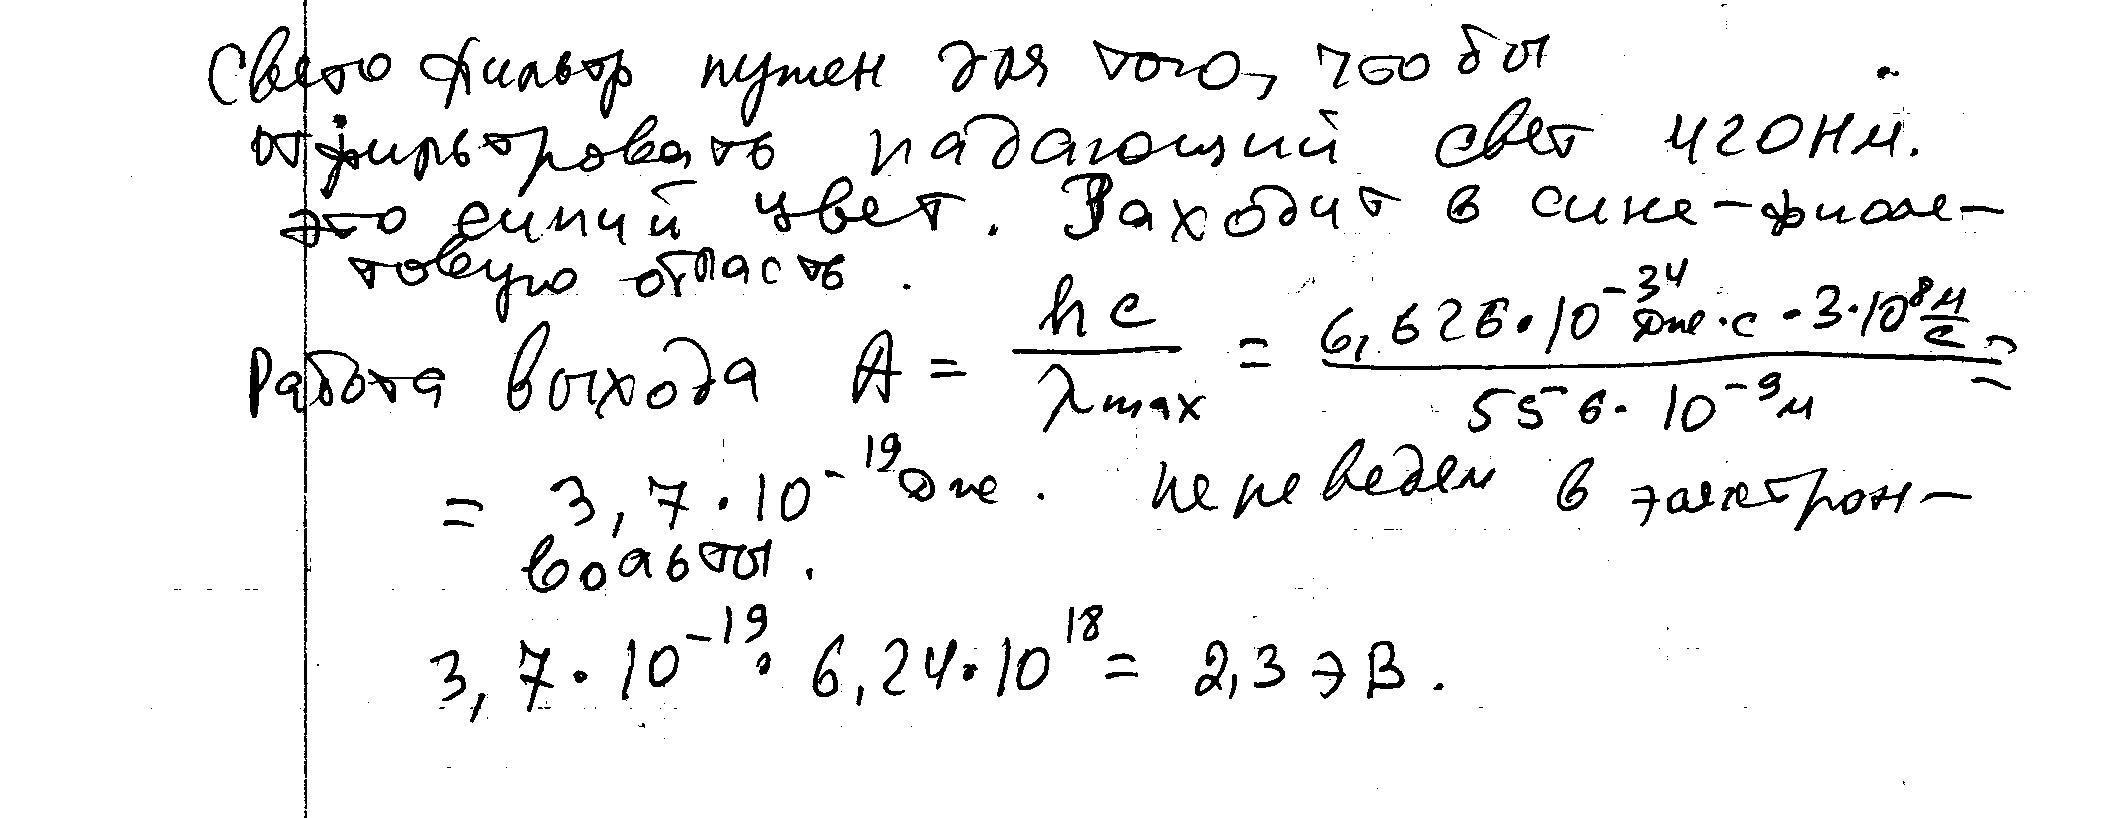 Светофильтр нужен для того, чтобы
отфильтровать падающий свет 420 нм.
это синий цвет. Заходит в сине-фиоле-
товую область.
Работа выхода A = hc / λmax = 6,626·10^-34 Дж·с · 3·10^8 м/с / 556·10^-9 м =
= 3,7·10^-19 Дж. переведем в электрон-
вольты.
3,7·10^-19 · 6,24·10^18 = 2,3 эВ.